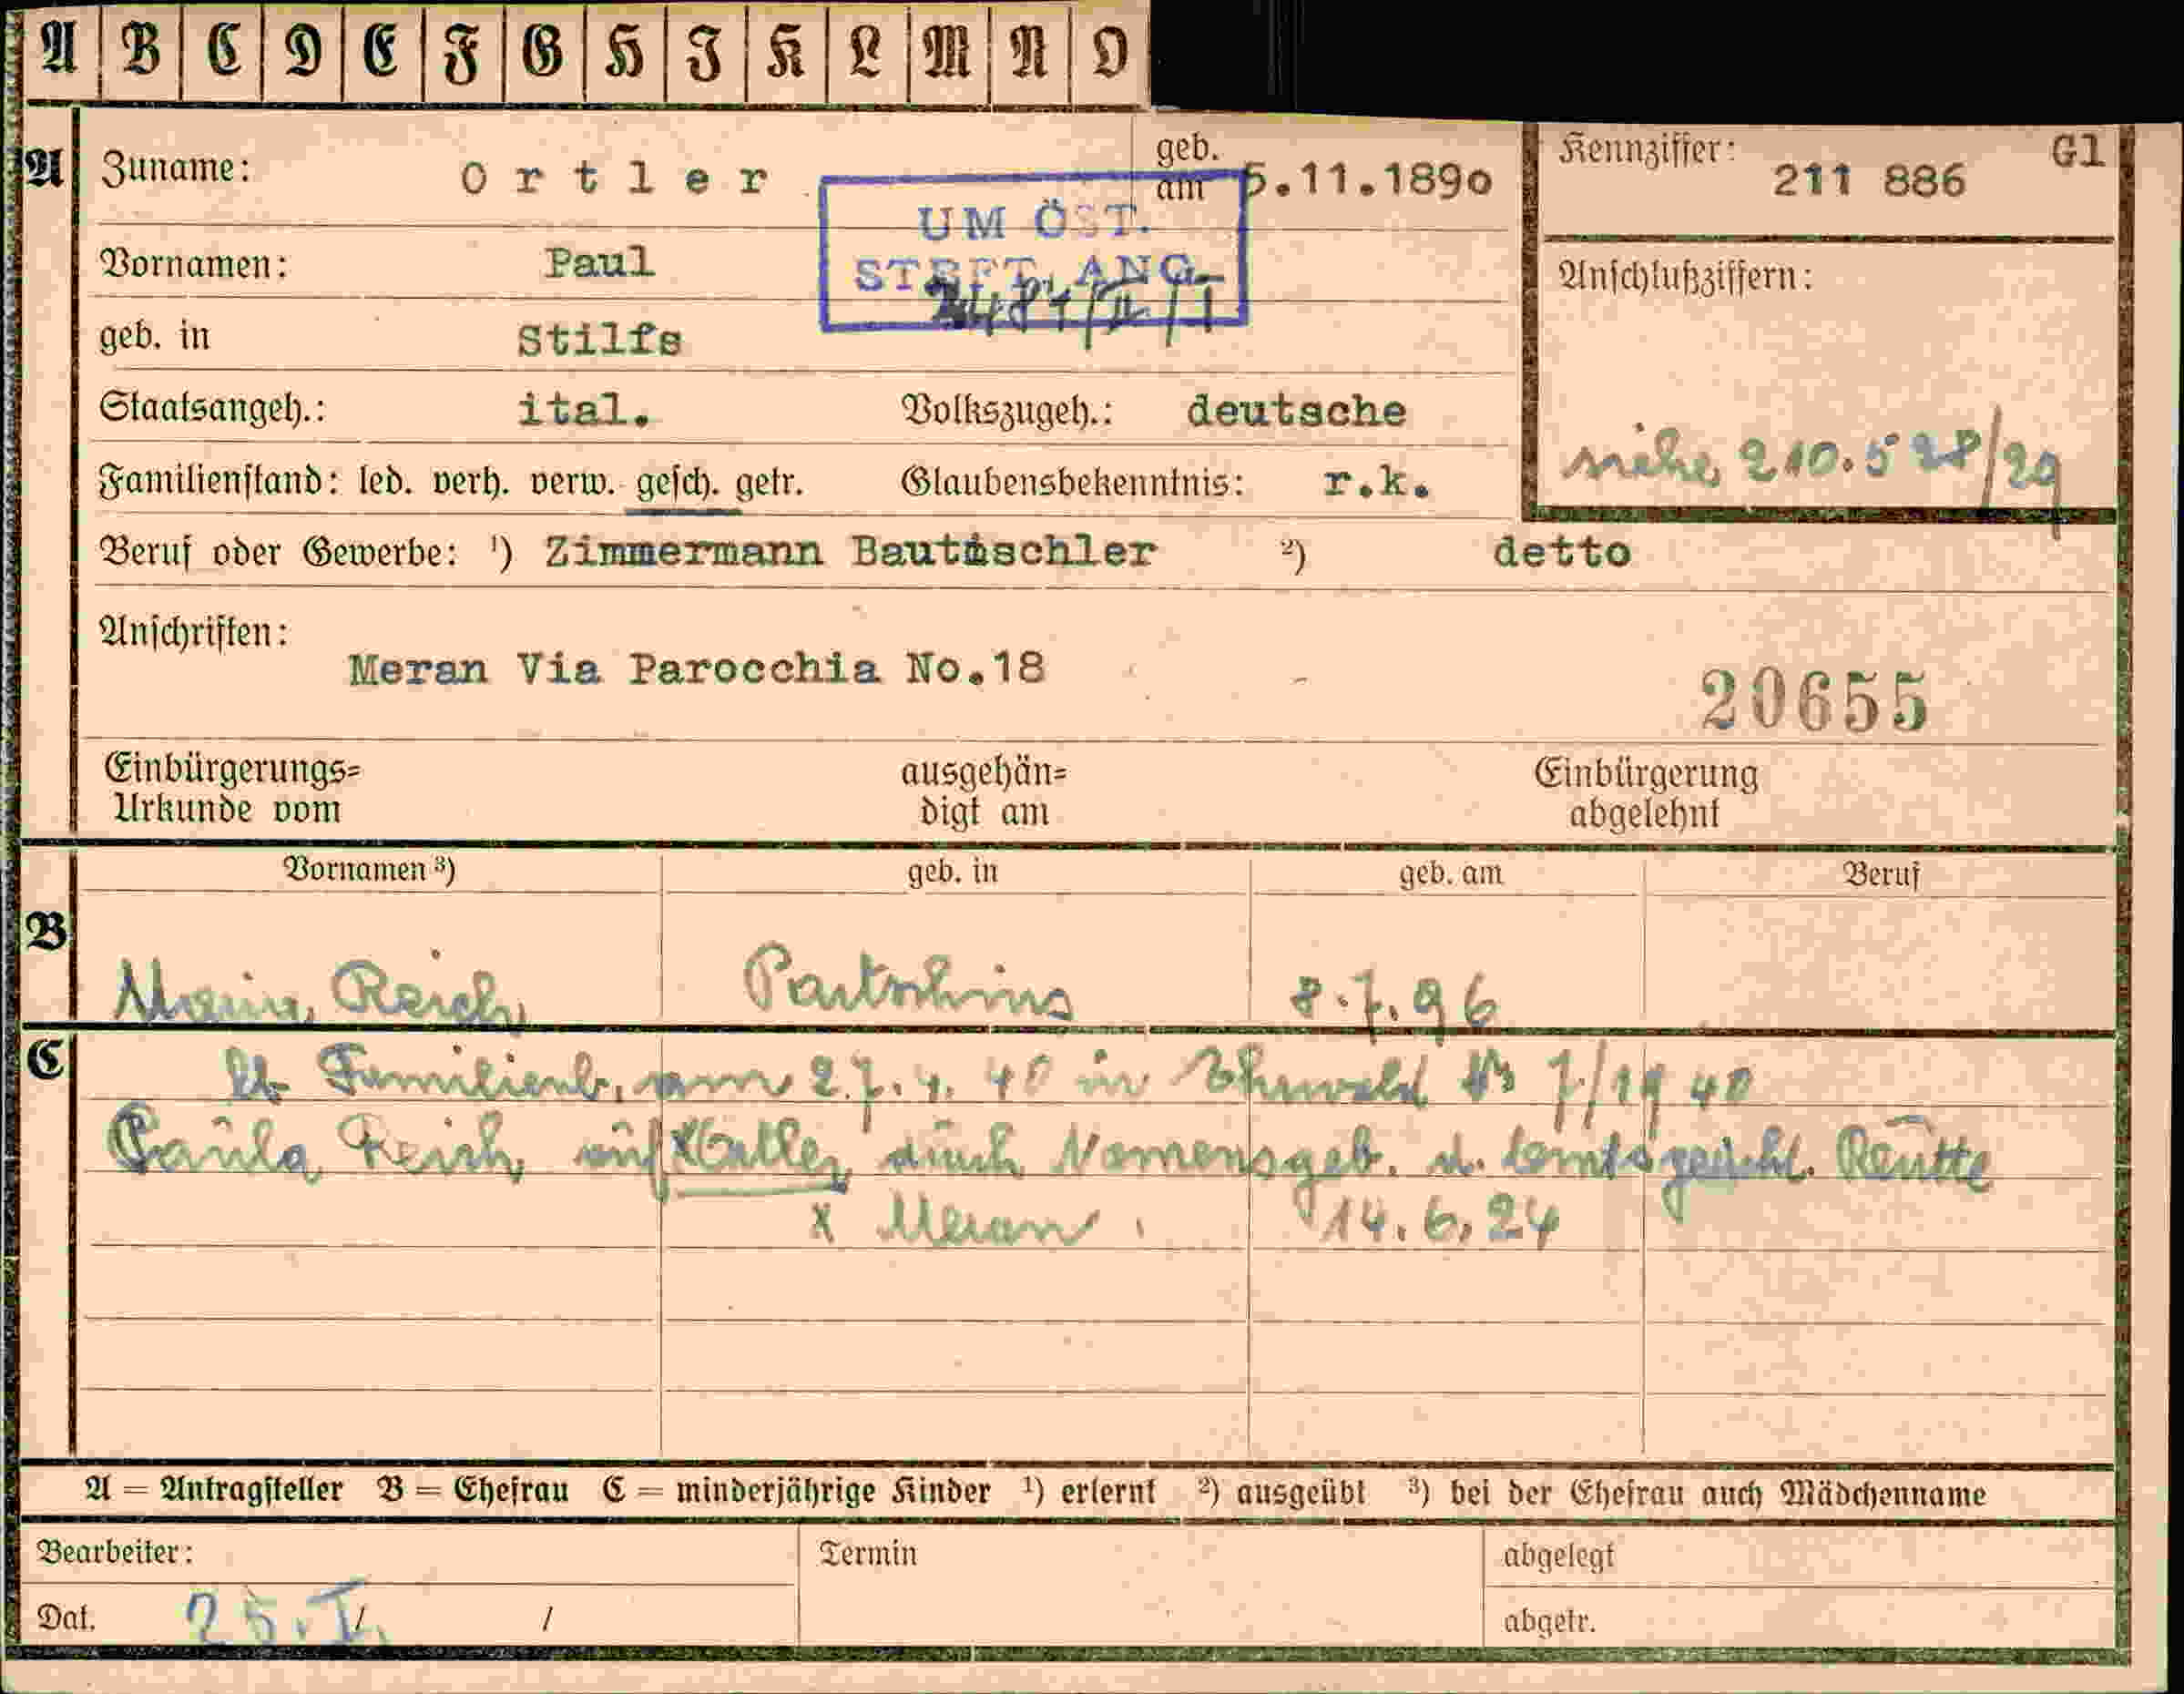 A B C D E F G H I K L M N O
A Zuname: Ortler geb. am 5.11.1890 Kennziffer: 211 886 Gl
UM ÖST.
STRFT. ANG.
Vornamen: Paul
Anschlußziffern:
geb. in Stilfs
Staatsangeh.: ital. Volkszugeh.: deutsche
siehe 210.528/29
Familienstand: led. verh. verw. gesch. getr. Glaubensbekenntnis: r.k.
Beruf oder Gewerbe: ¹) Zimmermann Bautischler ²) detto
Anschriften:
Meran Via Parocchia No.18
20655
Einbürgerungs= ausgehän= Einbürgerung
Urkunde vom digt am abgelehnt
Vornamen ³) geb. in geb. am Beruf
B
Reich Partschins 8.7.96
C lt Familienb. am 27.4.40 in Ehrwald No 7/1940
Paula Reich auf durch Namensgeb. d. Reutte
x Meran 14.6.24
A = Antragsteller B = Ehefrau C = minderjährige Kinder ¹) erlernt ²) ausgeübt ³) bei der Ehefrau auch Mädchenname
Bearbeiter: Termin abgelegt
Dat. 25.I. / / abgetr.